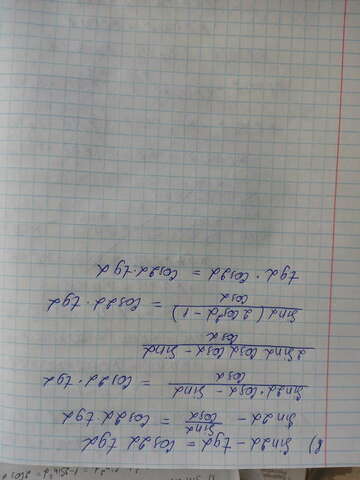 в) sin2α - tgα = cos2α tgα
sin2α - sinα/cosα = cos2α tgα
(sin2α · cosα - sinα)/cosα = cos2α · tgα
(2 sinα cosα cosα - sinα)/cosα
sinα (2 cos²α - 1)/cosα = cos2α · tgα
tgα · cos2α = cos2α · tgα